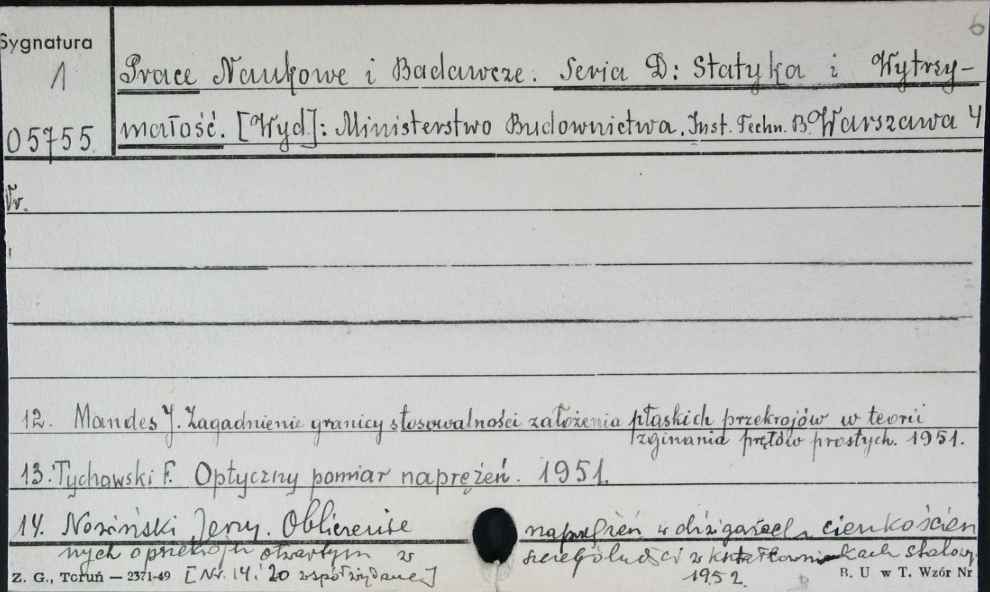 6
Sygnatura
1
05755
Prace Naukowe i Badawcze. Seria D: Statyka i Wytrzy-
małość. [Wyd]: Ministerstwo Budownictwa. Inst. Techn. B. Warszawa 4
Nr.
12. Mandes J. Zagadnienie granicy stosowalności założenia płaskich przekrojów w teorii
zginania prętów prostych. 1951.
13. Tychowski F. Optyczny pomiar naprężeń. 1951.
14. Nosiński Jerzy. Obliczenie naprężeń w dźwigarach cienkościen
nych o przekroju otwartym w szczególności w kształtownikach stalowy
[Nr. 14 i 20 współwydane] 1952.
Z. G., Toruń — 2371-49
B. U w T. Wzór Nr